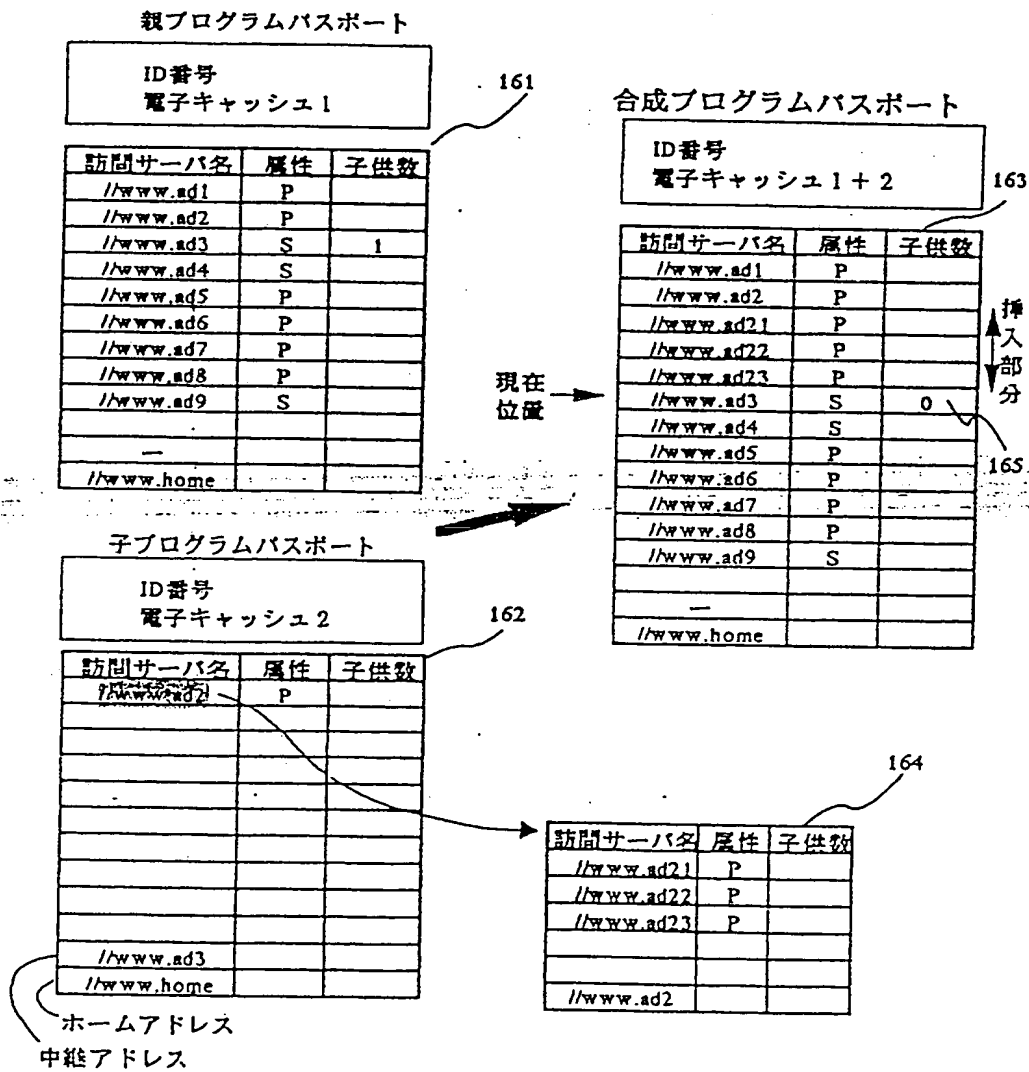 親プログラムパスポート
ID番号
電子キャッシュ1
161
訪問サーバ名 属性 子供数
//www.ad1 P
//www.ad2 P
//www.ad3 S 1
//www.ad4 S
//www.ad5 P
//www.ad6 P
//www.ad7 P
//www.ad8 P
//www.ad9 S
—
//www.home
子プログラムパスポート
ID番号
電子キャッシュ2
162
訪問サーバ名 属性 子供数
//www.ad2 P
//www.ad3
//www.home
ホームアドレス
中継アドレス
合成プログラムパスポート
ID番号
電子キャッシュ1+2
163
訪問サーバ名 属性 子供数
//www.ad1 P
//www.ad2 P
//www.ad21 P
//www.ad22 P
//www.ad23 P
//www.ad3 S 0
//www.ad4 S
//www.ad5 P
//www.ad6 P
//www.ad7 P
//www.ad8 P
//www.ad9 S
—
//www.home
挿入部分
現在
位置
165
164
訪問サーバ名 属性 子供数
//www.ad21 P
//www.ad22 P
//www.ad23 P
//www.ad2